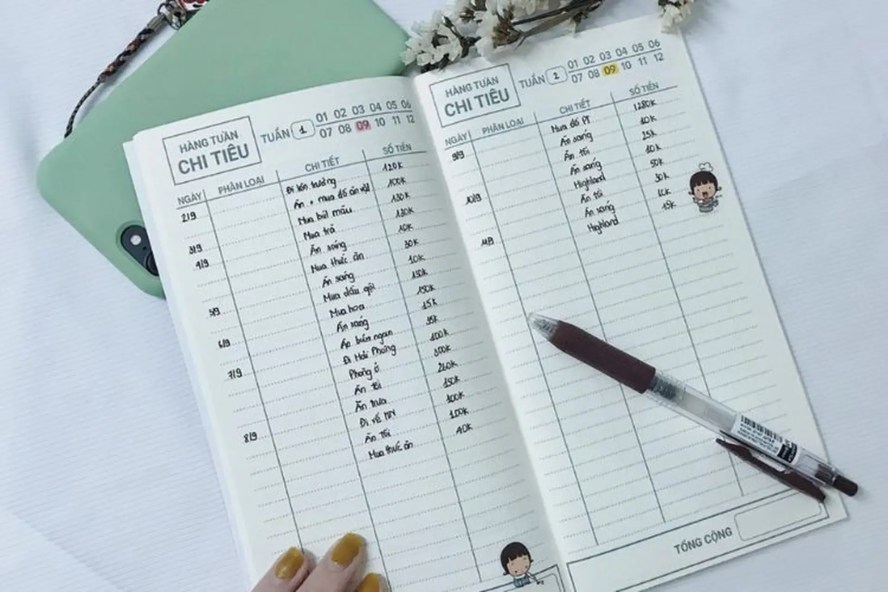 HÀNG TUẦN
CHI TIÊU
TUẦN 1
01 02 03 04 05 06
07 08 09 10 11 12
NGÀY PHÂN LOẠI CHI TIẾT SỐ TIỀN
2/9 Đi lên trường 120k
Ăn + mua đồ ăn vặt 100k
Mua bút màu 130k
3/9 Mua trà 120k
4/9 Ăn sáng 10k
Mua thức ăn 30k
Ăn sáng 10k
5/9 Mua dầu gội 150k
Mua hoa 150k
6/9 Ăn sáng 15k
Ăn bún ngan 35k
7/9 Đi Hải Phòng 100k
Phòng ở 300k
Ăn tối 260k
Ăn trưa 150k
8/9 Đi về HN 100k
Ăn Tối 100k
Mua thức ăn 40k
HÀNG TUẦN
CHI TIÊU
TUẦN 2
01 02 03 04 05 06
07 08 09 10 11 12
NGÀY PHÂN LOẠI CHI TIẾT SỐ TIỀN
9/9 Mua đồ PT 1280k
Ăn sáng 10k
Ăn tối 25k
10/9 Ăn sáng 10k
Highland 50k
Ăn tối 30k
11/9 Ăn sáng 10k
Highland 15k
TỔNG CỘNG